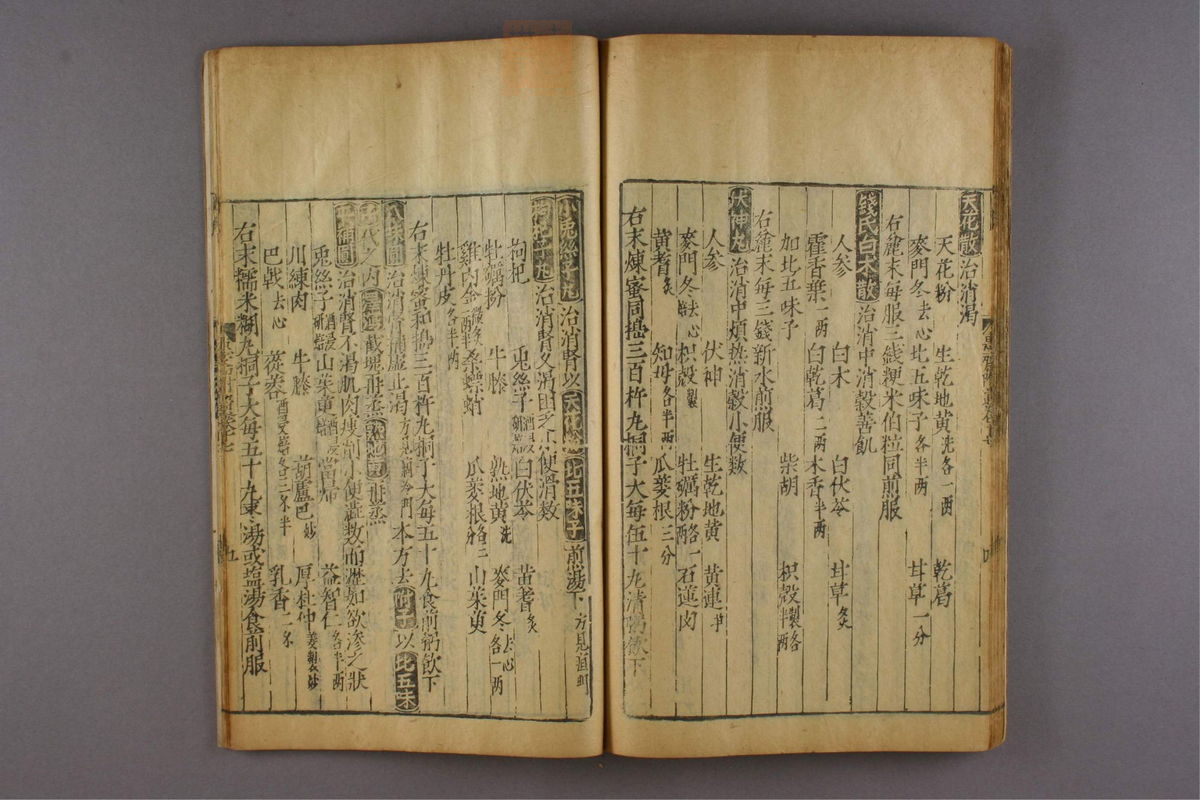 天花散治消渴
天花粉 生乾地黄洗各一两 乾葛
麥門冬去心北五味子各半两 甘草一分
右麄末每服三錢粳米伯粒同煎服
錢氏白木散治消中消穀善飢
人參 白木 白伏苓 甘草炙
霍香葉一两白乾葛二两木香半两
加北五味子 柴胡 枳殼製各半两
右麄末每三錢新水煎服
伏神丸治消中煩热消穀小便数
人参 伏神 生乾地黄 黄連半
麥門冬去心枳殼製 牡礪粉各一两石蓮肉
黄耆炙 知母各半两瓜蔞根三分
右末煉蜜同搗三百杵丸桐子大每伍十丸清粥飲下
小兎絲子丸治消腎以天花粉北五味子煎湯下方見
枸杞子丸治消腎久渴困乏小便滑数
枸杞 兎絲子酒浸研焙白伏苓 黄耆炙
牡礪粉 牛膝 熟地黄洗 麥門冬去心各一两
雞内金 桑螵蛸 瓜蔞根各三分山茱萸
牡丹皮各半两
右末煉蜜和搗三百杵丸桐子大每五十丸食前粥飲下
八味圓治消腎補虚止渴 本方去附子以北五味
子代之
治消腎不渴肌肉瘦削小便澁数而瀝如欲滲之狀
兎絲子酒浸研山茱萸酒浸當歸 益智仁各半两
川練肉 牛膝 葫蘆巴炒 厚杜仲姜製炒
巴戟去心 蓯蓉 乳香二禾
右末糯米糊丸桐子大每五十丸棗湯或塩湯食前服